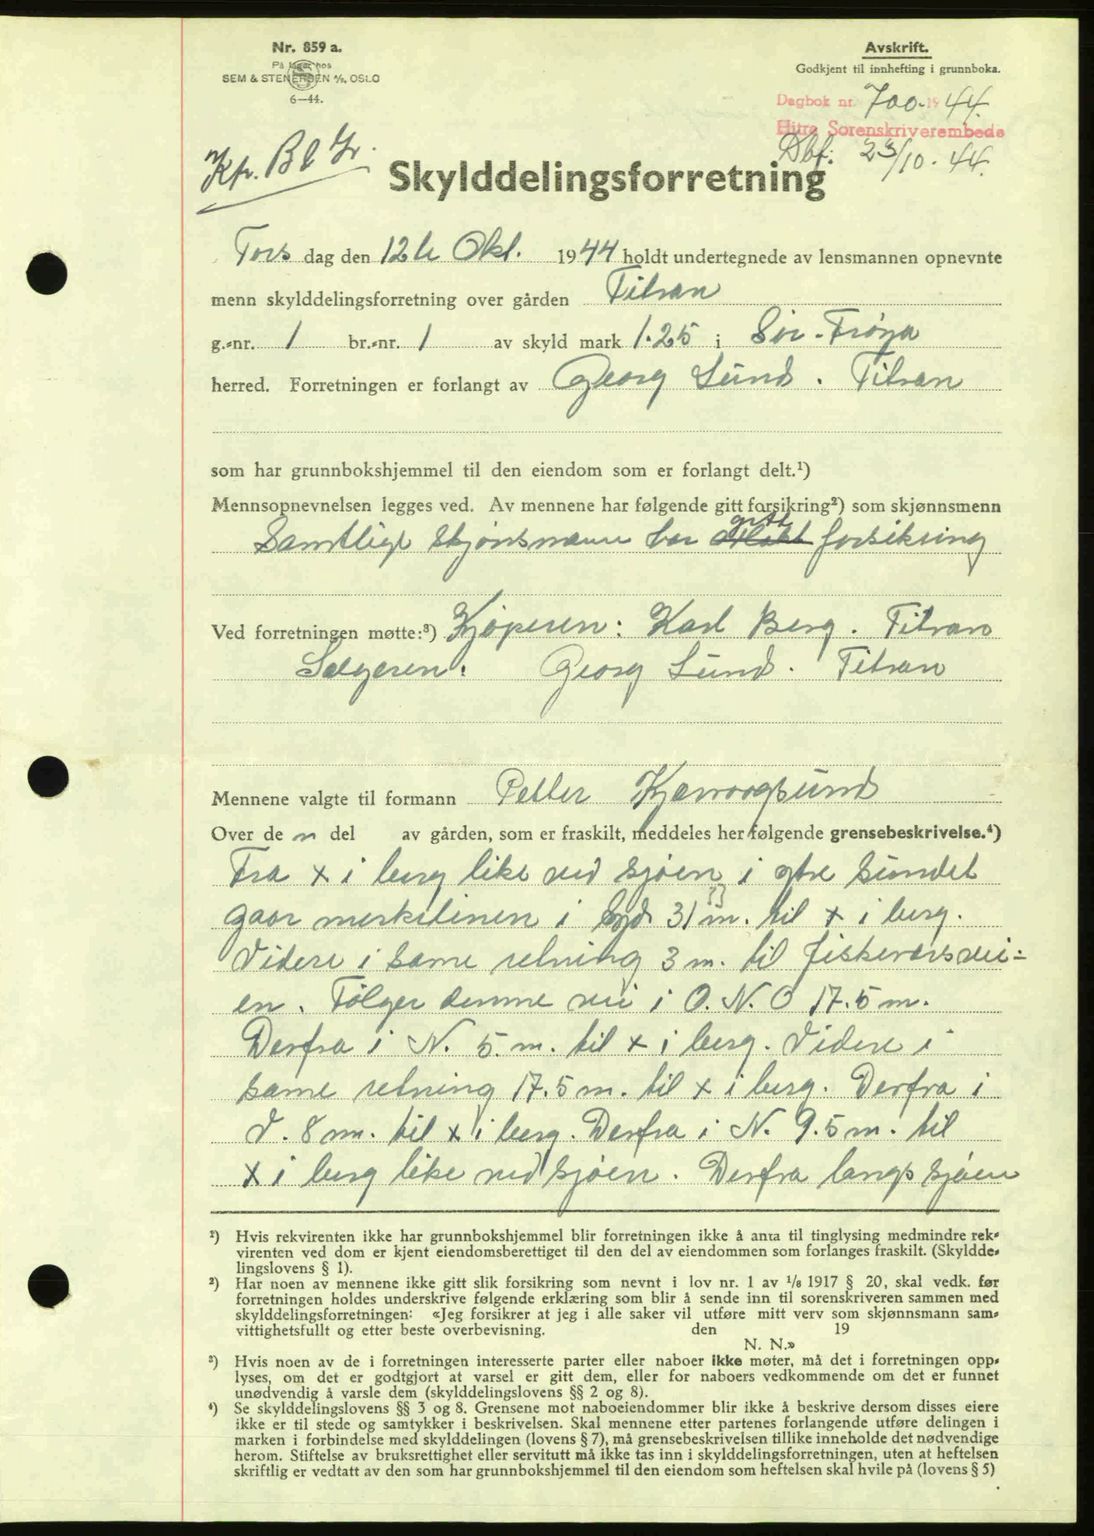 Nr. 859 a.
På lager hos
SEM & STENERSEN A/S, OSLO
6—44.
Avskrift.
Godkjent til innhefting i grunnboka.
Dagbok nr. 700. 1944.
Hitra Sorenskriverembede
Dbf: 23/10. 44.
Kp. Bl
Skylddelingsforretning
Tors dag den 12te Okt. 1944 holdt undertegnede av lensmannen opnevnte
menn skylddelingsforretning over gården Titran
g.-nr. 1 br.-nr. 1 av skyld mark 1.25 i Sør-Frøya
herred. Forretningen er forlangt av Georg Lund. Titran
som har grunnbokshjemmel til den eiendom som er forlangt delt.¹)
Mennsopnevnelsen legges ved. Av mennene har følgende gitt forsikring²) som skjønnsmenn
gitt
Samtlige skjønsmenn har forsikring
Ved forretningen møtte:³) Kjøperen: Karl Berg. Titran
Selgeren: Georg Lund. Titran
Mennene valgte til formann Petter
Over de n del av gården, som er fraskilt, meddeles her følgende grensebeskrivelse.⁴)
Fra x i berg like ved sjøen i ytre sundet
gaar merkelinen i Syd 31 m. til x i berg.
Videre i same retning 3 m. til fiskeværsvei-
en. Følger denne vei i O.N.O 17.5 m.
Derfra i N. 5 m. til x i berg. Videre i
same retning 17.5 m. til x i berg. Derfra i
V. 8 m. til x i berg. Derfra i N. 9.5 m. til
x i berg like ved sjøen. Derfra langs sjøen
¹) Hvis rekvirenten ikke har grunnbokshjemmel blir forretningen ikke å anta til tinglysing medmindre rek-
virenten ved dom er kjent eiendomsberettiget til den del av eiendommen som forlanges fraskilt. (Skyldde-
lingslovens § 1).
²) Har noen av mennene ikke gitt slik forsikring som nevnt i lov nr. 1 av 1/8 1917 § 20, skal vedk. før
forretningen holdes underskrive følgende erklæring som blir å sende inn til sorenskriveren sammen med
skylddelingsforretningen: «Jeg forsikrer at jeg i alle saker vil utføre mitt verv som skjønnsmann sam-
vittighetsfullt og etter beste overbevisning. den 19
N. N.»
³) Hvis noen av de i forretningen interesserte parter eller naboer ikke møter, må det i forretningen opp-
lyses, om det er godtgjort at varsel er gitt dem, eller for naboers vedkommende om det er funnet
unødvendig å varsle dem (skylddelingslovens §§ 2 og 8).
⁴) Se skylddelingslovens §§ 3 og 8. Grensene mot naboeiendommer blir ikke å beskrive dersom disses eiere
ikke er til stede og samtykker i beskrivelsen. Skal mennene etter partenes forlangende utføre delingen i
marken i forbindelse med skylddelingen (lovens § 7), må grensebeskrivelsen tillike inneholde det nødvendige
herom. Stiftelse av bruksrettighet eller servitutt må ikke tas inn i skylddelingsforretningen, uten at heftelsen
skriftlig er vedtatt av den som har grunnbokshjemmel til den eiendom som heftelsen skal hvile på (lovens § 5)